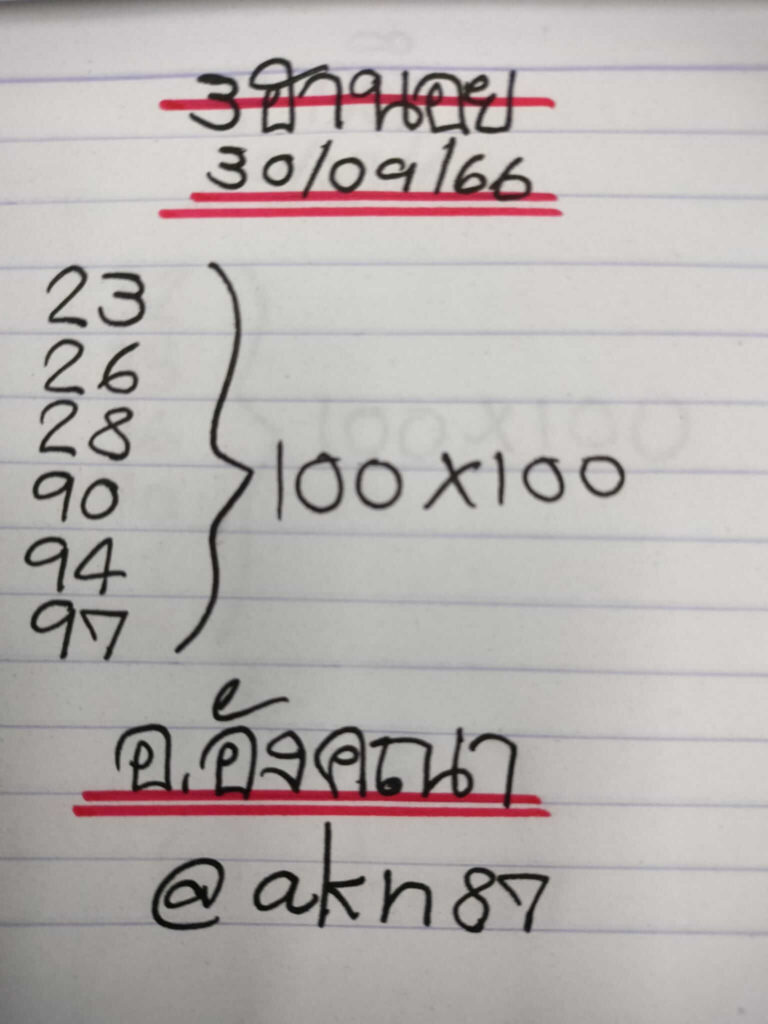 ฮานอย
30/09/66
23
26
28
90
94
97
100X100
อ.อังคณา
@akn87